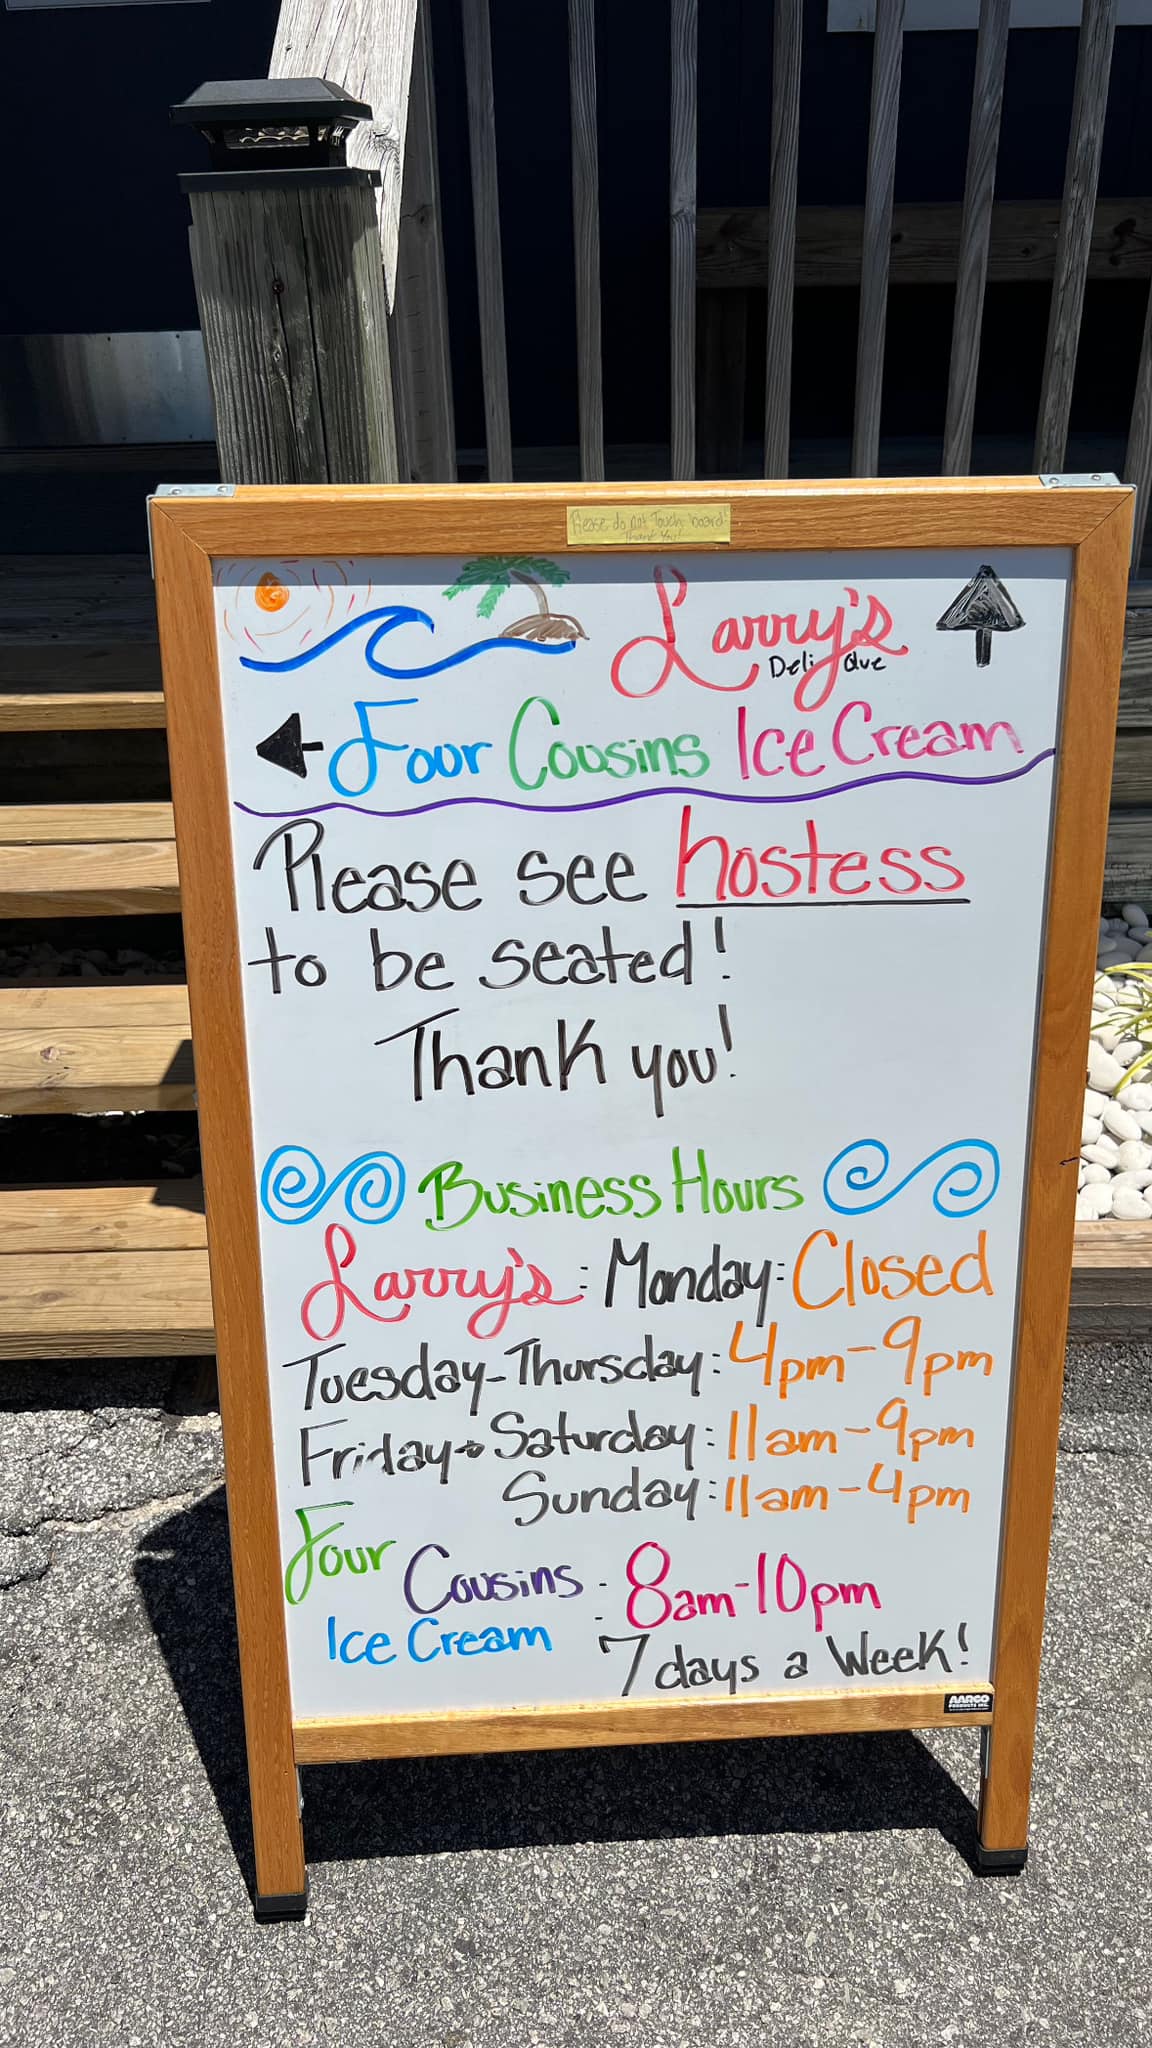 Please do not Touch board!
Thank You!
Larry's
Deli Que
Four Cousins Ice Cream
Please see hostess
to be seated!
Thank you!
Business Hours
Larry's: Monday: Closed
Tuesday-Thursday: 4pm-9pm
Friday-Saturday: 11am-9pm
Sunday: 11am-4pm
Four Cousins : 8am-10pm
Ice Cream 7 days a Week!
AARCO
PRODUCTS INC.